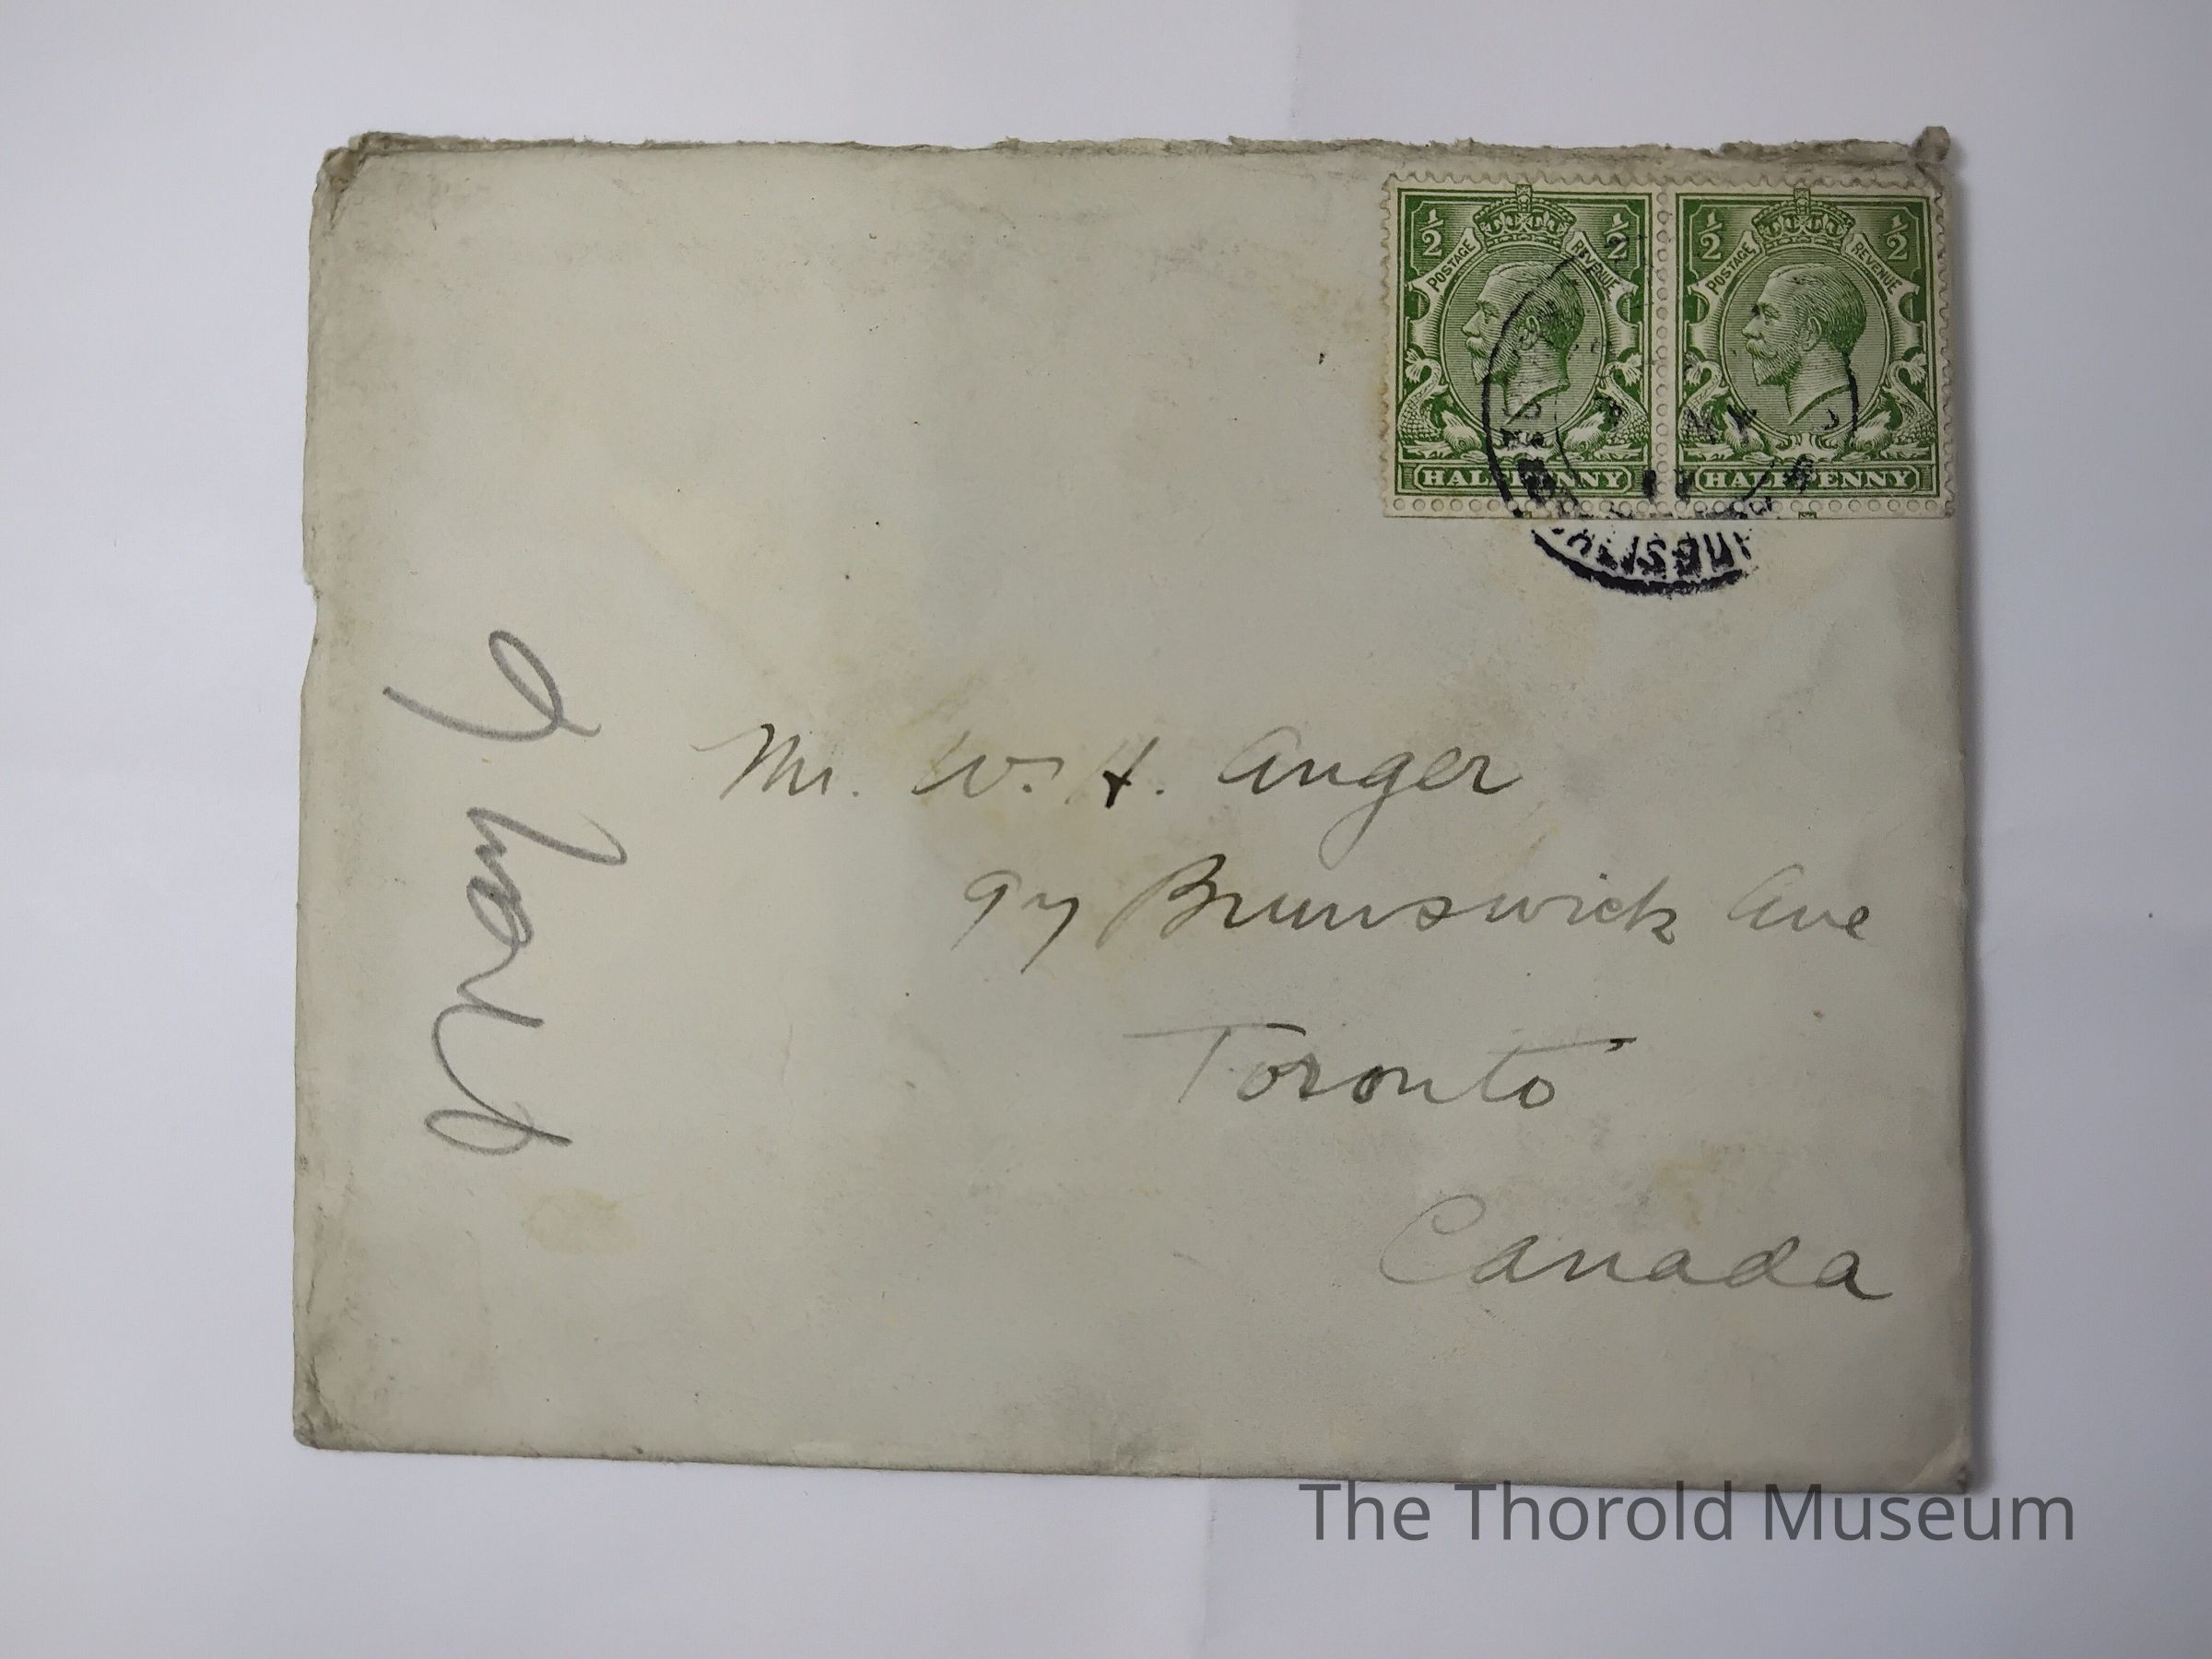 ½ POSTAGE REVENUE ½
HALFPENNY
½ POSTAGE REVENUE ½
HALFPENNY
Mr. W. H. Anger
97 Brunswick Ave
Toronto
Canada
The Thorold Museum